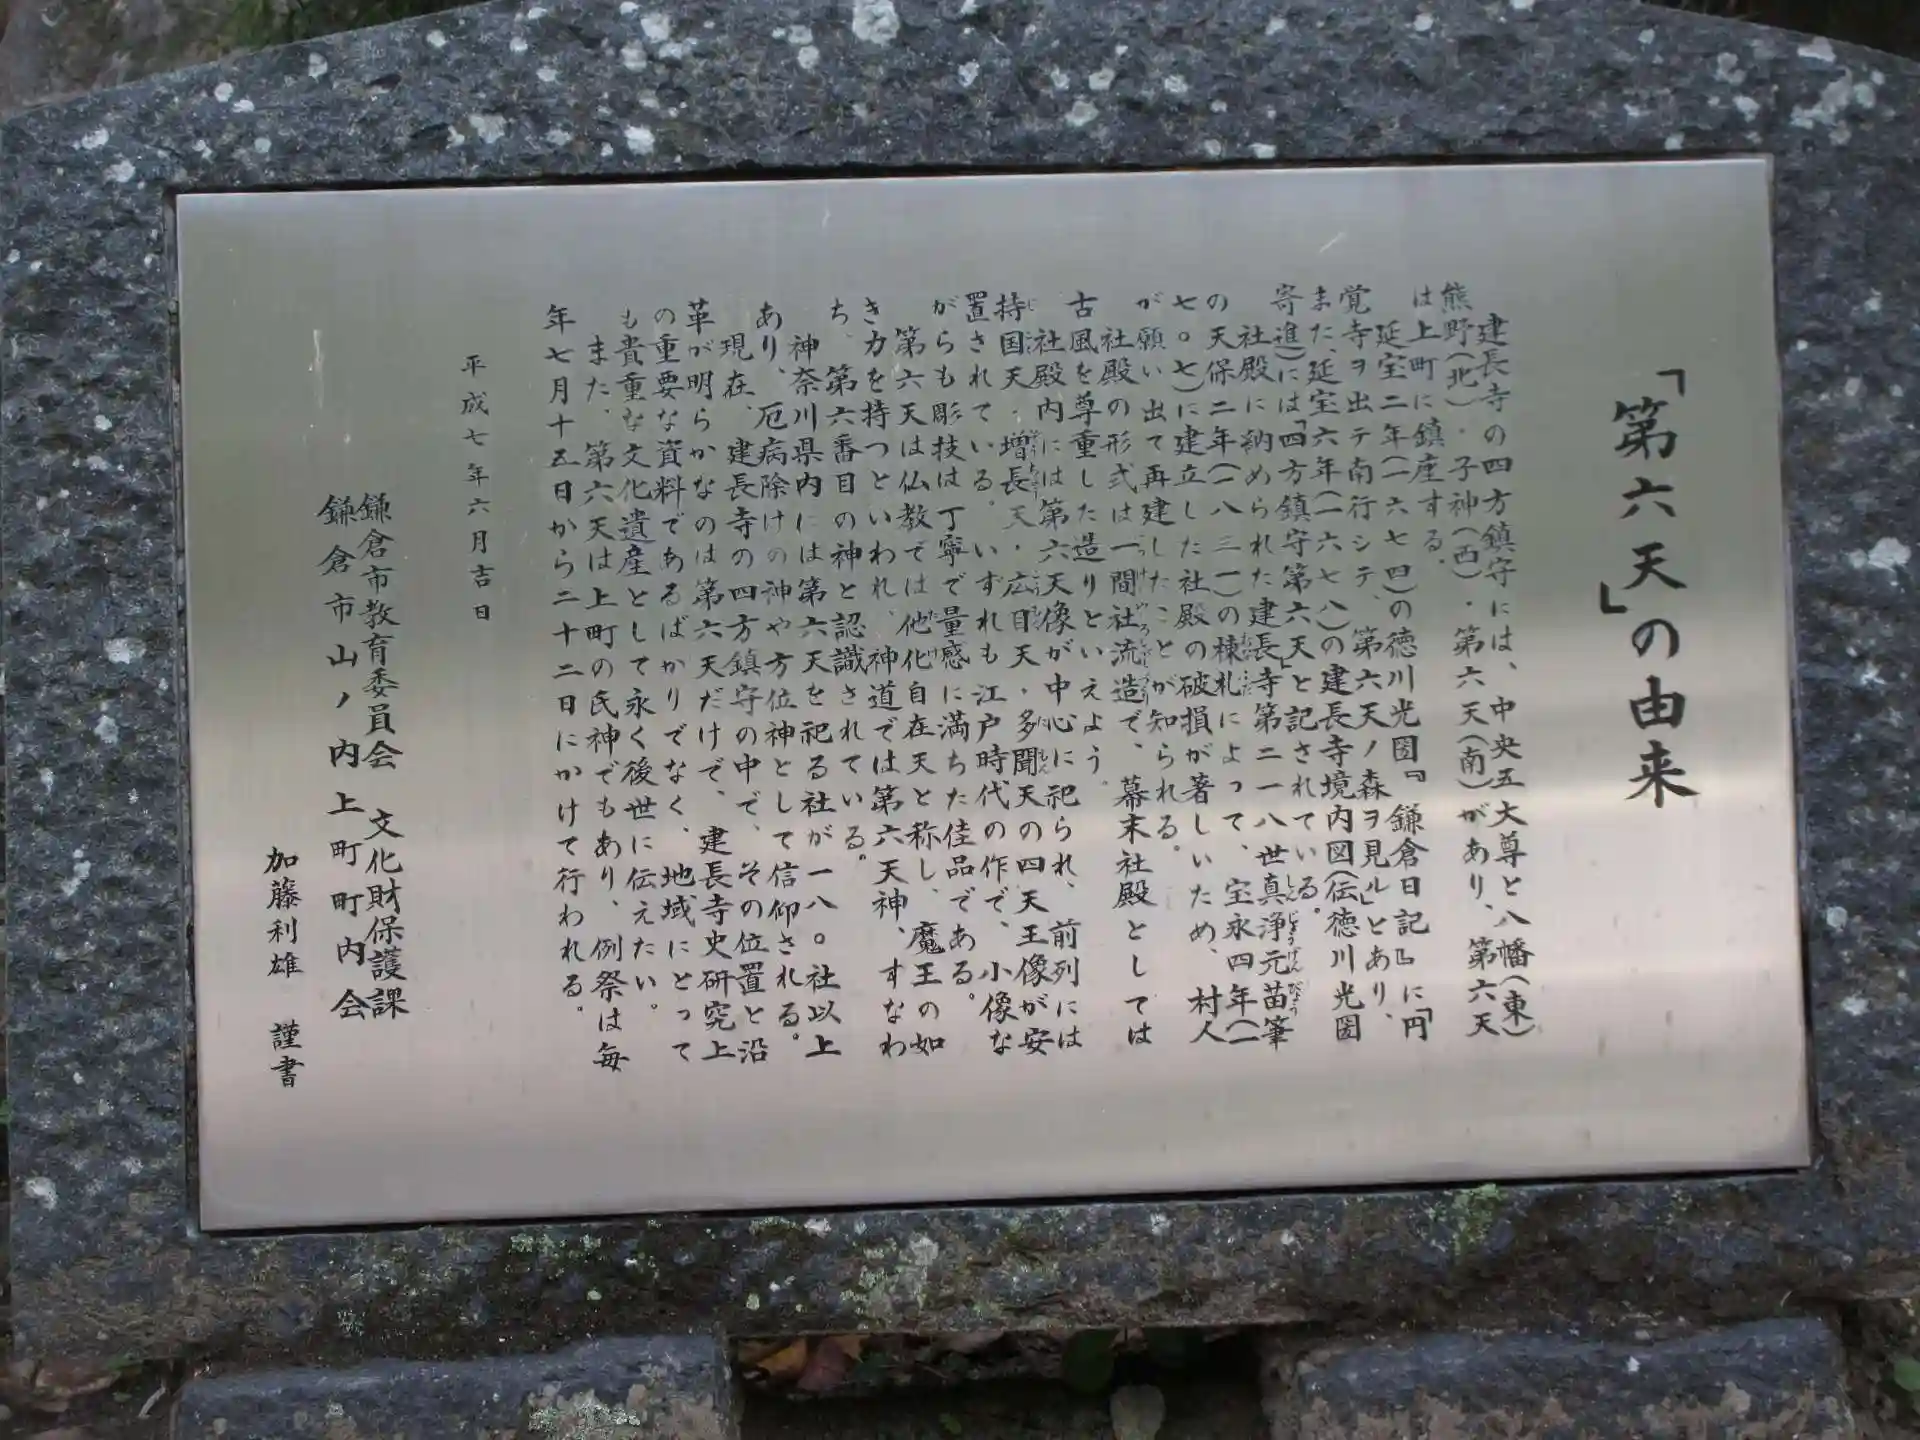 「第六天」の由来
建長寺の四方鎮守には、中央五大尊と八幡(東)
熊野(北)・子神(西)・第六天(南)があり、第六天
は上町に鎮座する。
延宝二年(一六七四)の徳川光圀『鎌倉日記』に「円
覚寺ヲ出テ南行シテ、第六天ノ森ヲ見ル」とあり、
また、延宝六年(一六七八)の建長寺境内図(伝徳川光圀
寄進)には「四方鎮守第六天」と記されている。
社殿に納められた建長寺第二一八世真浄元苗筆
の天保二年(一八三一)の棟札によって、宝永四年(一
七〇七)に建立した社殿の破損が著しいため、村人
が願い出て再建したことが知られる。
社殿の形式は一間社流造で、幕末社殿としては
古風を尊重した造りといえよう。
社殿内には第六天像が中心に祀られ、前列には
持国天・増長天・広目天・多聞天の四天王像が安
置されている。いずれも江戸時代の作で、小像な
がらも彫技は丁寧で量感に満ちた佳品である。
第六天は仏教では他化自在天と称し、魔王の如
き力を持つといわれ、神道では第六天神、すなわ
ち、第六番目の神と認識されている。
神奈川県内には第六天を祀る社が一八〇社以上
あり、厄病除けの神や方位神として信仰される。
現在、建長寺の四方鎮守の中で、その位置と沿
革が明らかなのは第六天だけで、建長寺史研究上
の重要な資料であるばかりでなく、地域にとって
も貴重な文化遺産として永く後世に伝えたい。
また、第六天は上町の氏神でもあり、例祭は毎
年七月十五日から二十二日にかけて行われる。
平成七年六月吉日
鎌倉市教育委員会 文化財保護課
鎌倉市山ノ内上町町内会
加藤利雄 謹書